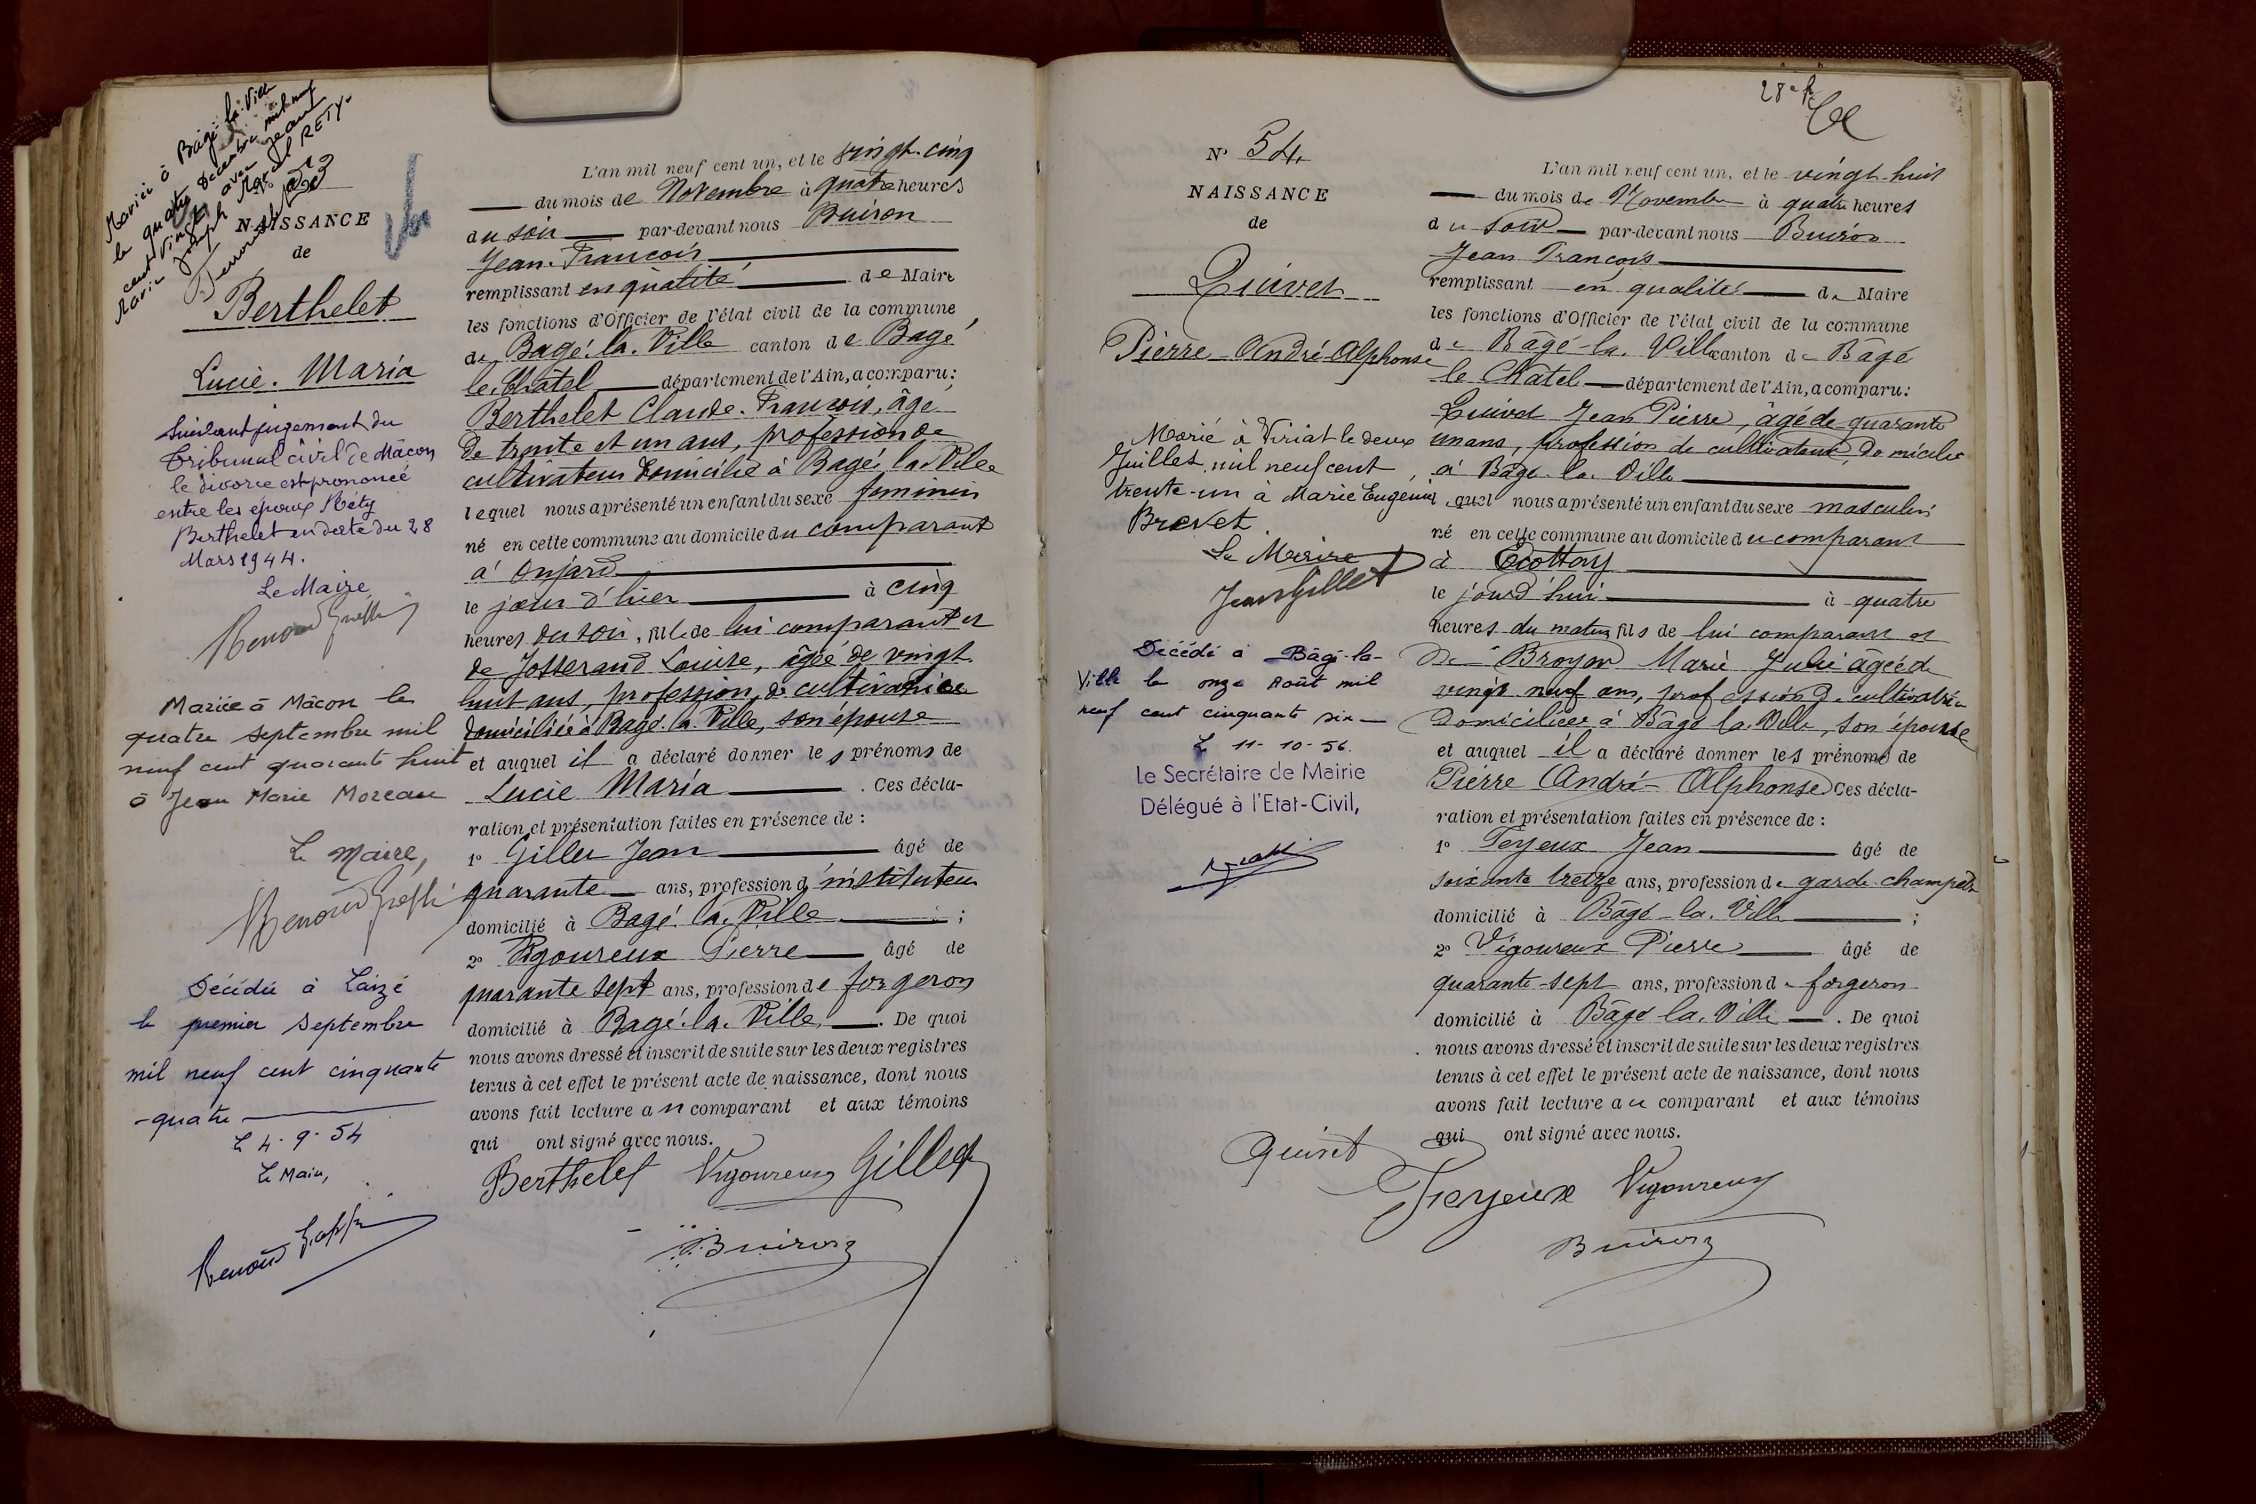 Mariée à Bagé-la-Ville
le quatre Décembre mil neuf
cent vingt avec Jean
Marie Joseph Marcel RETY.
N° 53
NAISSANCE
de
Berthelet
Lucie. Maria
Suivant jugement du
Tribunal civil de Mâcon
le divorce est prononcé
entre les époux Réty
Berthelet en date du 28
Mars 1944.
Le Maire
Mariée à Mâcon le
quatre septembre mil
neuf cent quarante huit
à Jean Marie Moreau
Le Maire,
Décédée à Laizé
le premier septembre
mil neuf cent cinquante
-quatre
L 4-9-54
Le Maire,
L'an mil neuf cent un, et le vingt-cinq
du mois de Novembre à quatre heures
du soir par-devant nous Buiron
Jean-François
remplissant en qualité de Maire
les fonctions d'Officier de l'état civil de la commune
de Bagé-la-Ville canton de Bagé
le Châtel département de l'Ain, a comparu:
Berthelet Claude-François, âgé
de trente et un ans, profession de
cultivateur domicilié à Bagé-la-Ville
lequel nous a présenté un enfant du sexe féminin
né en cette commune au domicile du comparant
à Onjard
le jour d'hier à cinq
heures du soir, fille de lui comparant et
de Josserand Louise, âgée de vingt
huit ans, profession de cultivatrice
domiciliée à Bagé-la-Ville, son épouse
et auquel il a déclaré donner les prénoms de
Lucie Maria. Ces décla-
ration et présentation faites en présence de :
1° Gillet Jean âgé de
quarante ans, profession d'instituteur
domicilié à Bagé-la-Ville ;
2° Vigoureux Pierre âgé de
quarante sept ans, profession de forgeron
domicilié à Bagé-la-Ville. De quoi
nous avons dressé et inscrit de suite sur les deux registres
tenus à cet effet le présent acte de naissance, dont nous
avons fait lecture au comparant et aux témoins
qui ont signé avec nous.
Berthelet Vigoureux Gillet
Buiron
28e f.
N° 54
NAISSANCE
de
Quivet
Pierre-André-Alphonse
Marié à Viriat le deux
Juillet mil neuf cent
trente-un à Marie Eugénie
Brevet
Le Maire
Jean Gillet
Décédé à Bâgé-la-
Ville le onze Août mil
neuf cent cinquante six
L 11-10-56.
Le Secrétaire de Mairie
Délégué à l'Etat-Civil,
L'an mil neuf cent un, et le vingt-huit
du mois de Novembre à quatre heures
du soir par-devant nous Buiron
Jean François
remplissant en qualité de Maire
les fonctions d'Officier de l'état civil de la commune
de Bâgé-la-Ville canton de Bâgé
le Châtel département de l'Ain, a comparu:
Quivet Jean Pierre, âgé de quarante
un ans, profession de cultivateur, domicilié
à Bâgé-la-Ville
quel nous a présenté un enfant du sexe masculin
né en cette commune au domicile du comparant
à
le jourd'hui à quatre
heures du matin, fils de lui comparant et
de Broyer Marie Julie âgée de
vingt neuf ans, profession de cultivatrice
domiciliée à Bâgé la Ville, son épouse
et auquel il a déclaré donner les prénoms de
Pierre André-Alphonse Ces décla-
ration et présentation faites en présence de :
1° Feyeux Jean âgé de
soixante treize ans, profession de garde-champêtre
domicilié à Bâgé-la-Ville ;
2° Vigoureux Pierre âgé de
quarante-sept ans, profession de forgeron
domicilié à Bâgé la Ville. De quoi
nous avons dressé et inscrit de suite sur les deux registres
tenus à cet effet le présent acte de naissance, dont nous
avons fait lecture au comparant et aux témoins
qui ont signé avec nous.
Quivet
Feyeux Vigoureux
Buiron